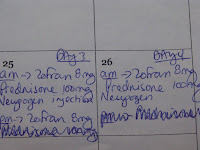 DAY 3
25
am → Zofran 8mg
Prednisone 100mg
Neupogen injection
pm → Zofran 8mg
Prednisone 100mg
DAY 4
26
am → Zofran 8mg
Prednisone 100mg
Neupogen
pm → Prednisone